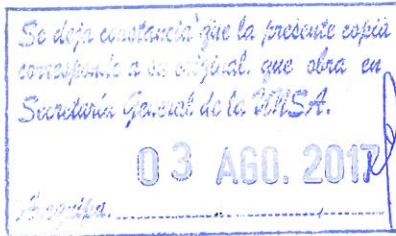 Se deja constancia que la presente copia
corresponde a su original. que obra en
Secretaría General de la UNSA.
03 AGO. 2017
Arequipa.